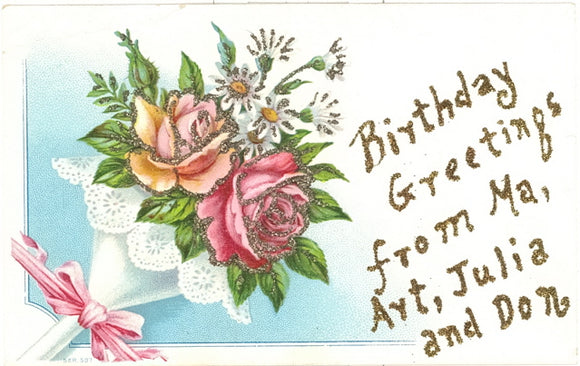 Birthday
Greetings
from Ma,
Art, Julia
and Don